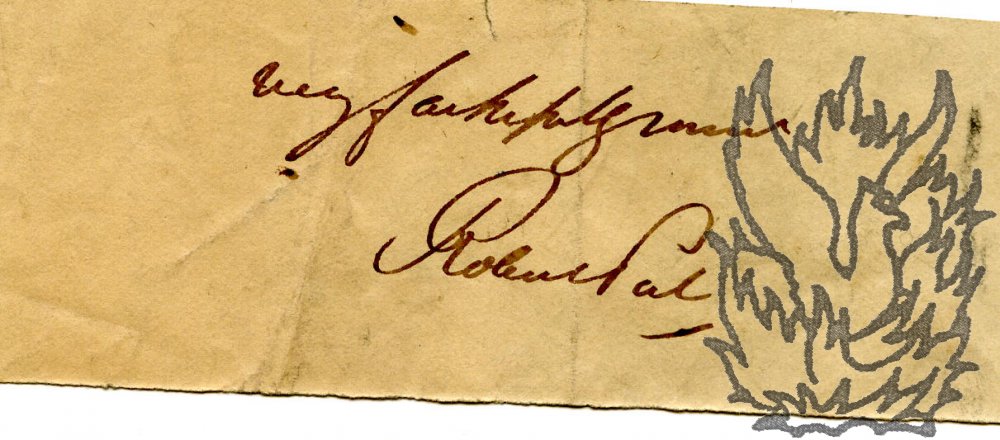 very faithfully yours
Robert Peel